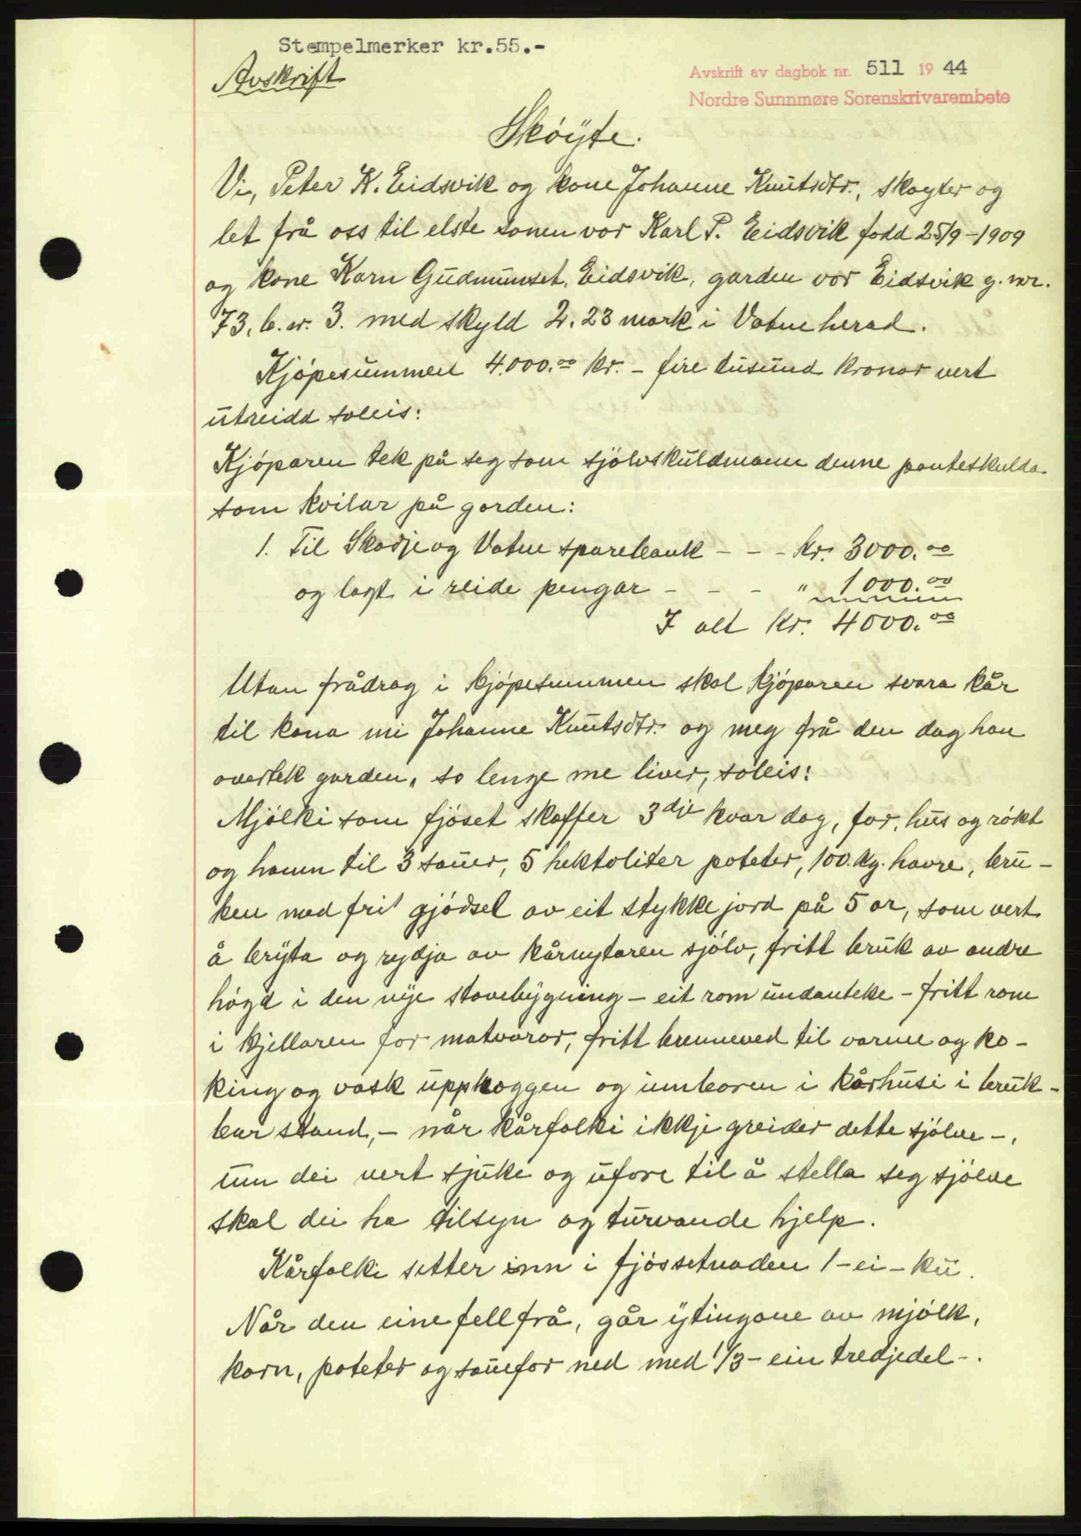 Stempelmerker kr.55.-
Avskrift
Avskrift av dagbok nr. 511 1944
Nordre Sunnmøre Sorenskrivarembete
Skøyte.
Vi, Peter K. Eidsvik og kone Johanne Knutsdtr., skøyter og
let frå oss til elste sonen vor Karl P. Eidsvik fødd 25/9-1909
og kone Karn Gudmunset, Eidsvik, garden vor Eidsvik g.nr.
73, b.nr. 3. med skyld 2.23 mark i Vatne herad.
Kjøpesummen 4.000.00 kr. - fire tusund kronor vert
utreidd soleis:
Kjøparen tek på seg som sjølvskuldmann denne panteskulda
som kvilar på garden:
1. Til Skodje og Vatne sparebank - - - kr. 3000.00
og lagt i reide pengar - - - " 1000.00
I alt kr. 4000.00
Utan frådrag i kjøpesummen skal kjøparen svara kår
til kona mi Johanne Knutsdtr. og meg frå den dag han
overtek garden, so lenge me liver, soleis:
Mjølki som fjøset skaffer 3 djr kvar dag, for, hus og røkt
og hamn til 3 sauer, 5 hektoliter poteter, 100 kg. havre, bru-
ken med fri gjødsel av eit stykke jord på 5 ar, som vert
å bryta og rydja av kårnytaren sjølv, fritt bruk av andre
høgd i den nye stovebygning - eit rom undanteke - fritt rom
i kjellaren for matvaror, fritt brenneved til varme og ko-
king og vask upphoggen og innboren i kårhusi i bruk-
bar stand, - når kårfolki ikkje greider dette sjølve -,
um dei vert sjuke og uføre til å stella seg sjølve
skal dei ha tilsyn og turvande hjelp.
Kårfolki setter inn i fjøssetnaden 1 - ei - ku.
Når den eine fell frå, går ytingane av mjølk,
korn, poteter og sauefor ned med 1/3 - ein tredjedel -.